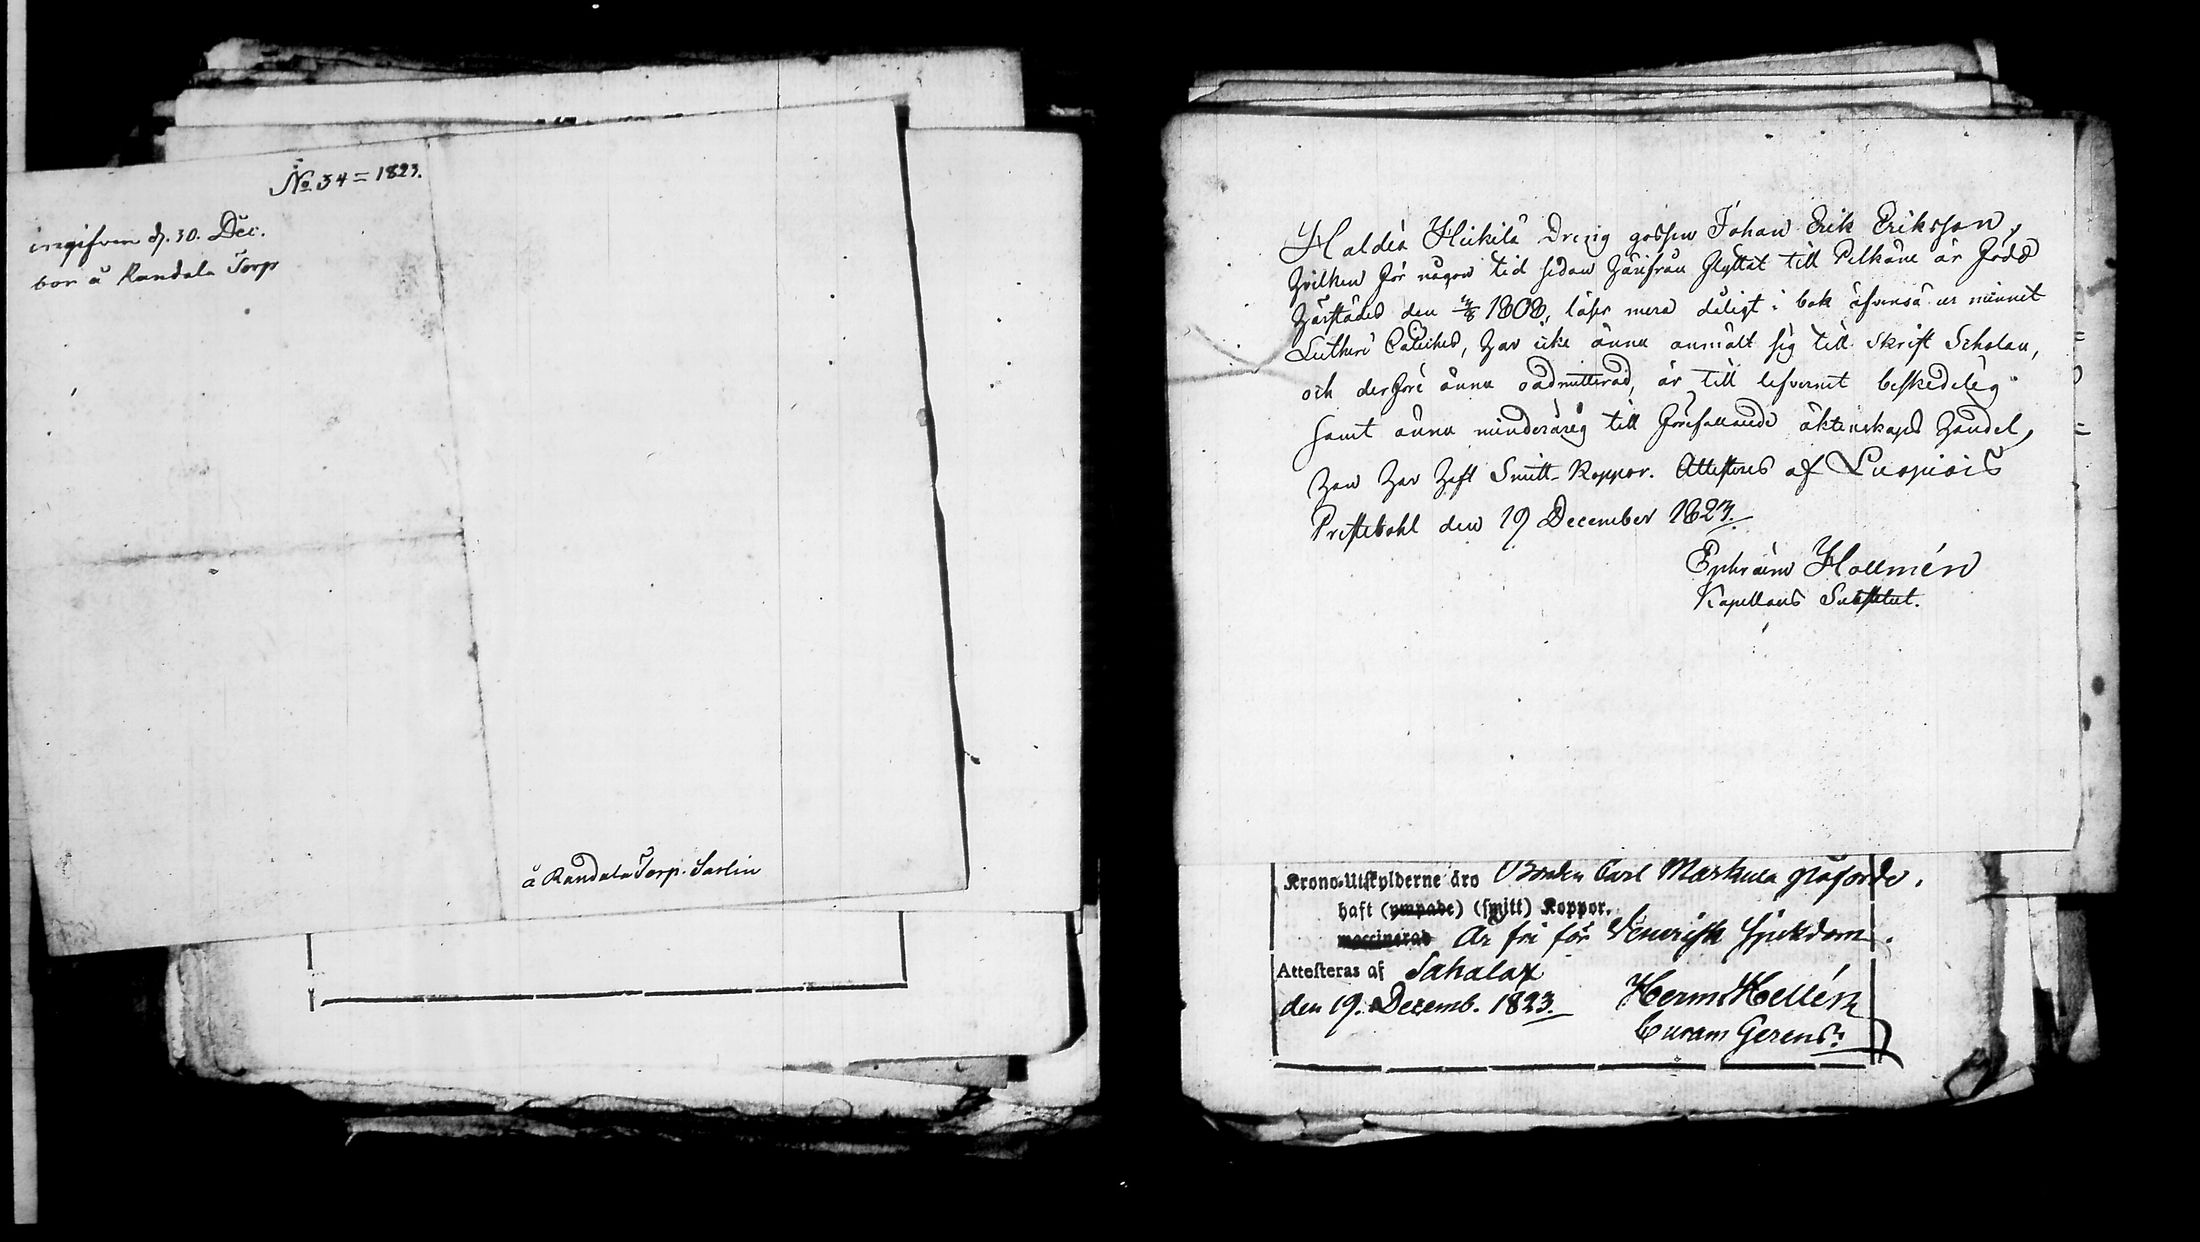 No 34 = 1823.
ingifven d. 30. Dec.
bor å Randala Torp
å Randala Torp. Sarlin
Haldia Heikilä Dreng gossen Johan Erik Eriksson,
hvilken för någon tid sedan härifrån flyttat till Pelkäne är född
härstädes den 1808, läser mera dåligt i bok äfvenså ur minnet
Lutheri Cateches, har icke ännu anmält sig till Skrift Scholan,
och derföre ännu oadmitterad, är till lefvernet beskedelig
samt ännu minderårig till förefallande äktenskaps handel,
han har haft Smitt-Koppor. Attesteres af Luopiois
Prestebohl den 19 December 1823.
Ephraim Hollmén
Kapellans Substitut.
Krono-Utskylderne äro Bonden Carl Markula påförde.
haft (ympade) (smitt) Koppor.
vaccinerad Är fri för Venerisk sjukdom.
Attesteras af Sahalax
den 19. Decemb. 1823. Herm. Hellén
Curam Gerens.